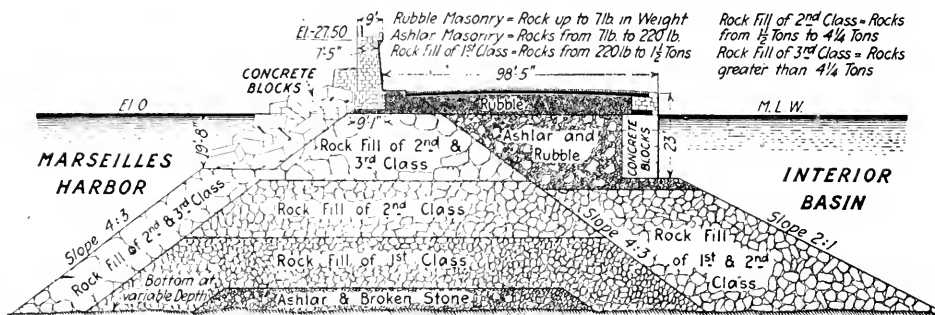 9'
El-27.50
7'-5"
Rubble Masonry = Rock up to 7lb. in Weight
Ashlar Masonry = Rocks from 7lb. to 220 lb.
Rock Fill of 1st Class = Rocks from 220 lb to 1½ Tons
Rock Fill of 2nd Class = Rocks
from 1½ Tons to 4¼ Tons
Rock Fill of 3rd Class = Rocks
greater than 4¼ Tons
98'-5"
CONCRETE
BLOCKS
El 0
M.L.W.
Rubble
19'-8"
9'-1"
Rock Fill of 2nd &
3rd Class
Ashlar and
Rubble
CONCRETE
BLOCKS
23'
MARSEILLES
HARBOR
INTERIOR
BASIN
Slope 4:3
Rock Fill of 2nd & 3rd Class
Rock Fill of 2nd Class
Slope 4:3
Slope 2:1
Rock Fill
of 1st & 2nd
Class
Rock Fill of 1st Class
Bottom at
variable Depth
Ashlar & Broken Stone